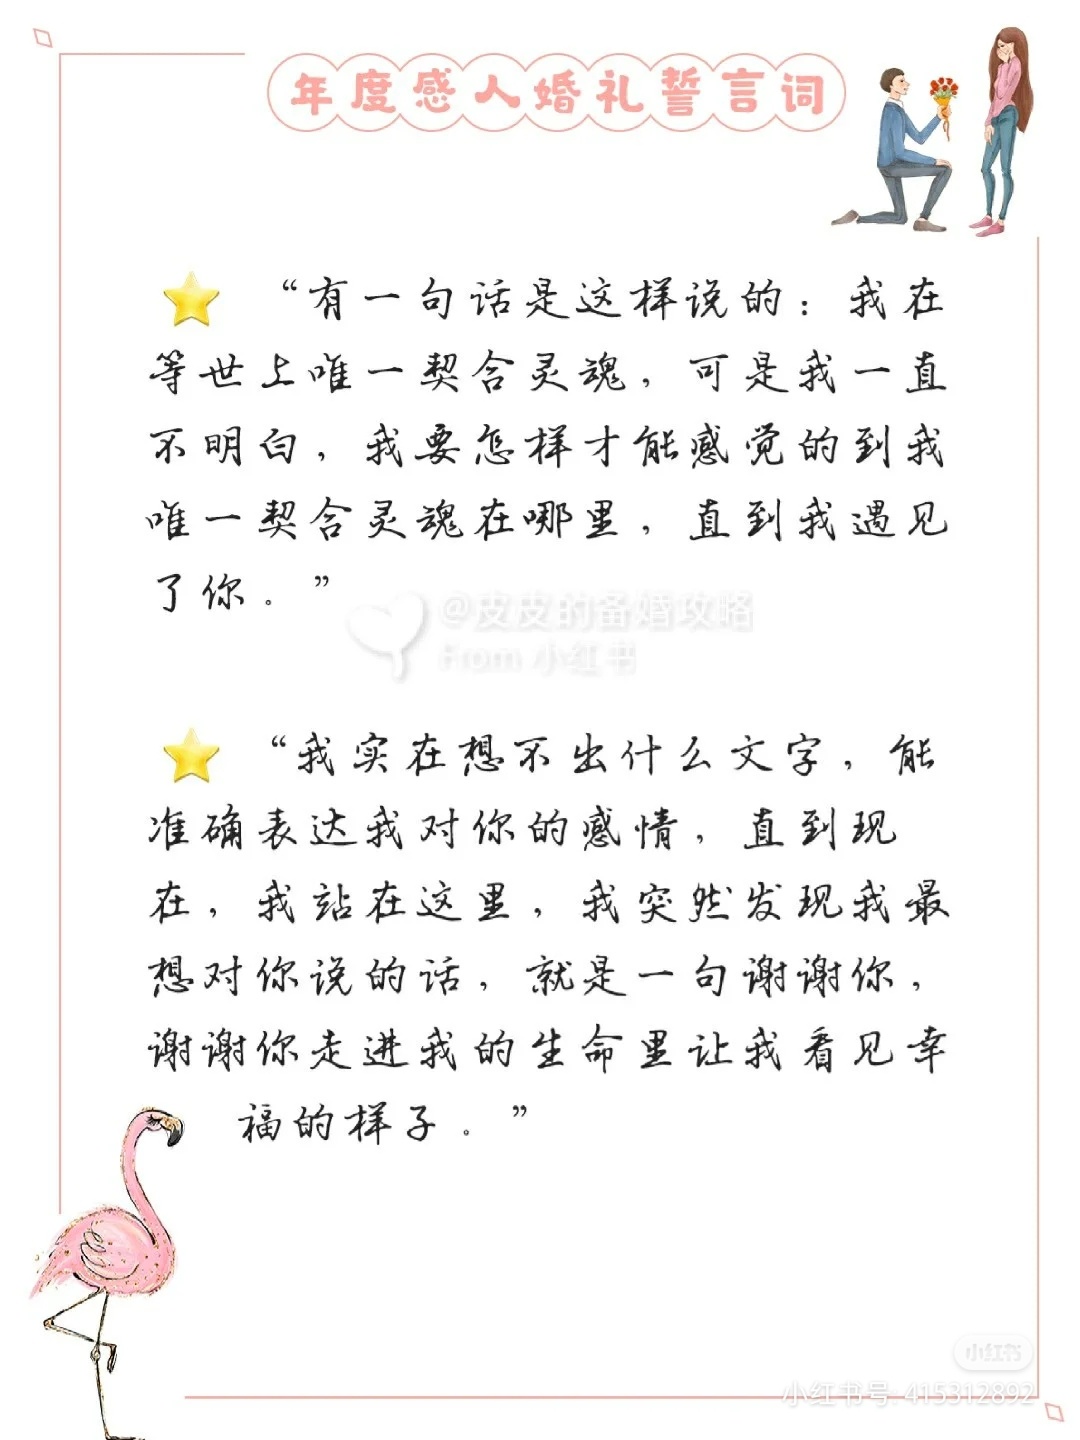 年度感人婚礼誓言词
“有一句话是这样说的：我在
等世上唯一契合灵魂，可是我一直
不明白，我要怎样才能感觉的到我
唯一契合灵魂在哪里，直到我遇见
了你。”
@皮皮的备婚攻略
From 小红书
“我实在想不出什么文字，能
准确表达我对你的感情，直到现
在，我站在这里，我突然发现我最
想对你说的话，就是一句谢谢你，
谢谢你走进我的生命里让我看见幸
福的样子。”
小红书
小红书号: 415312892